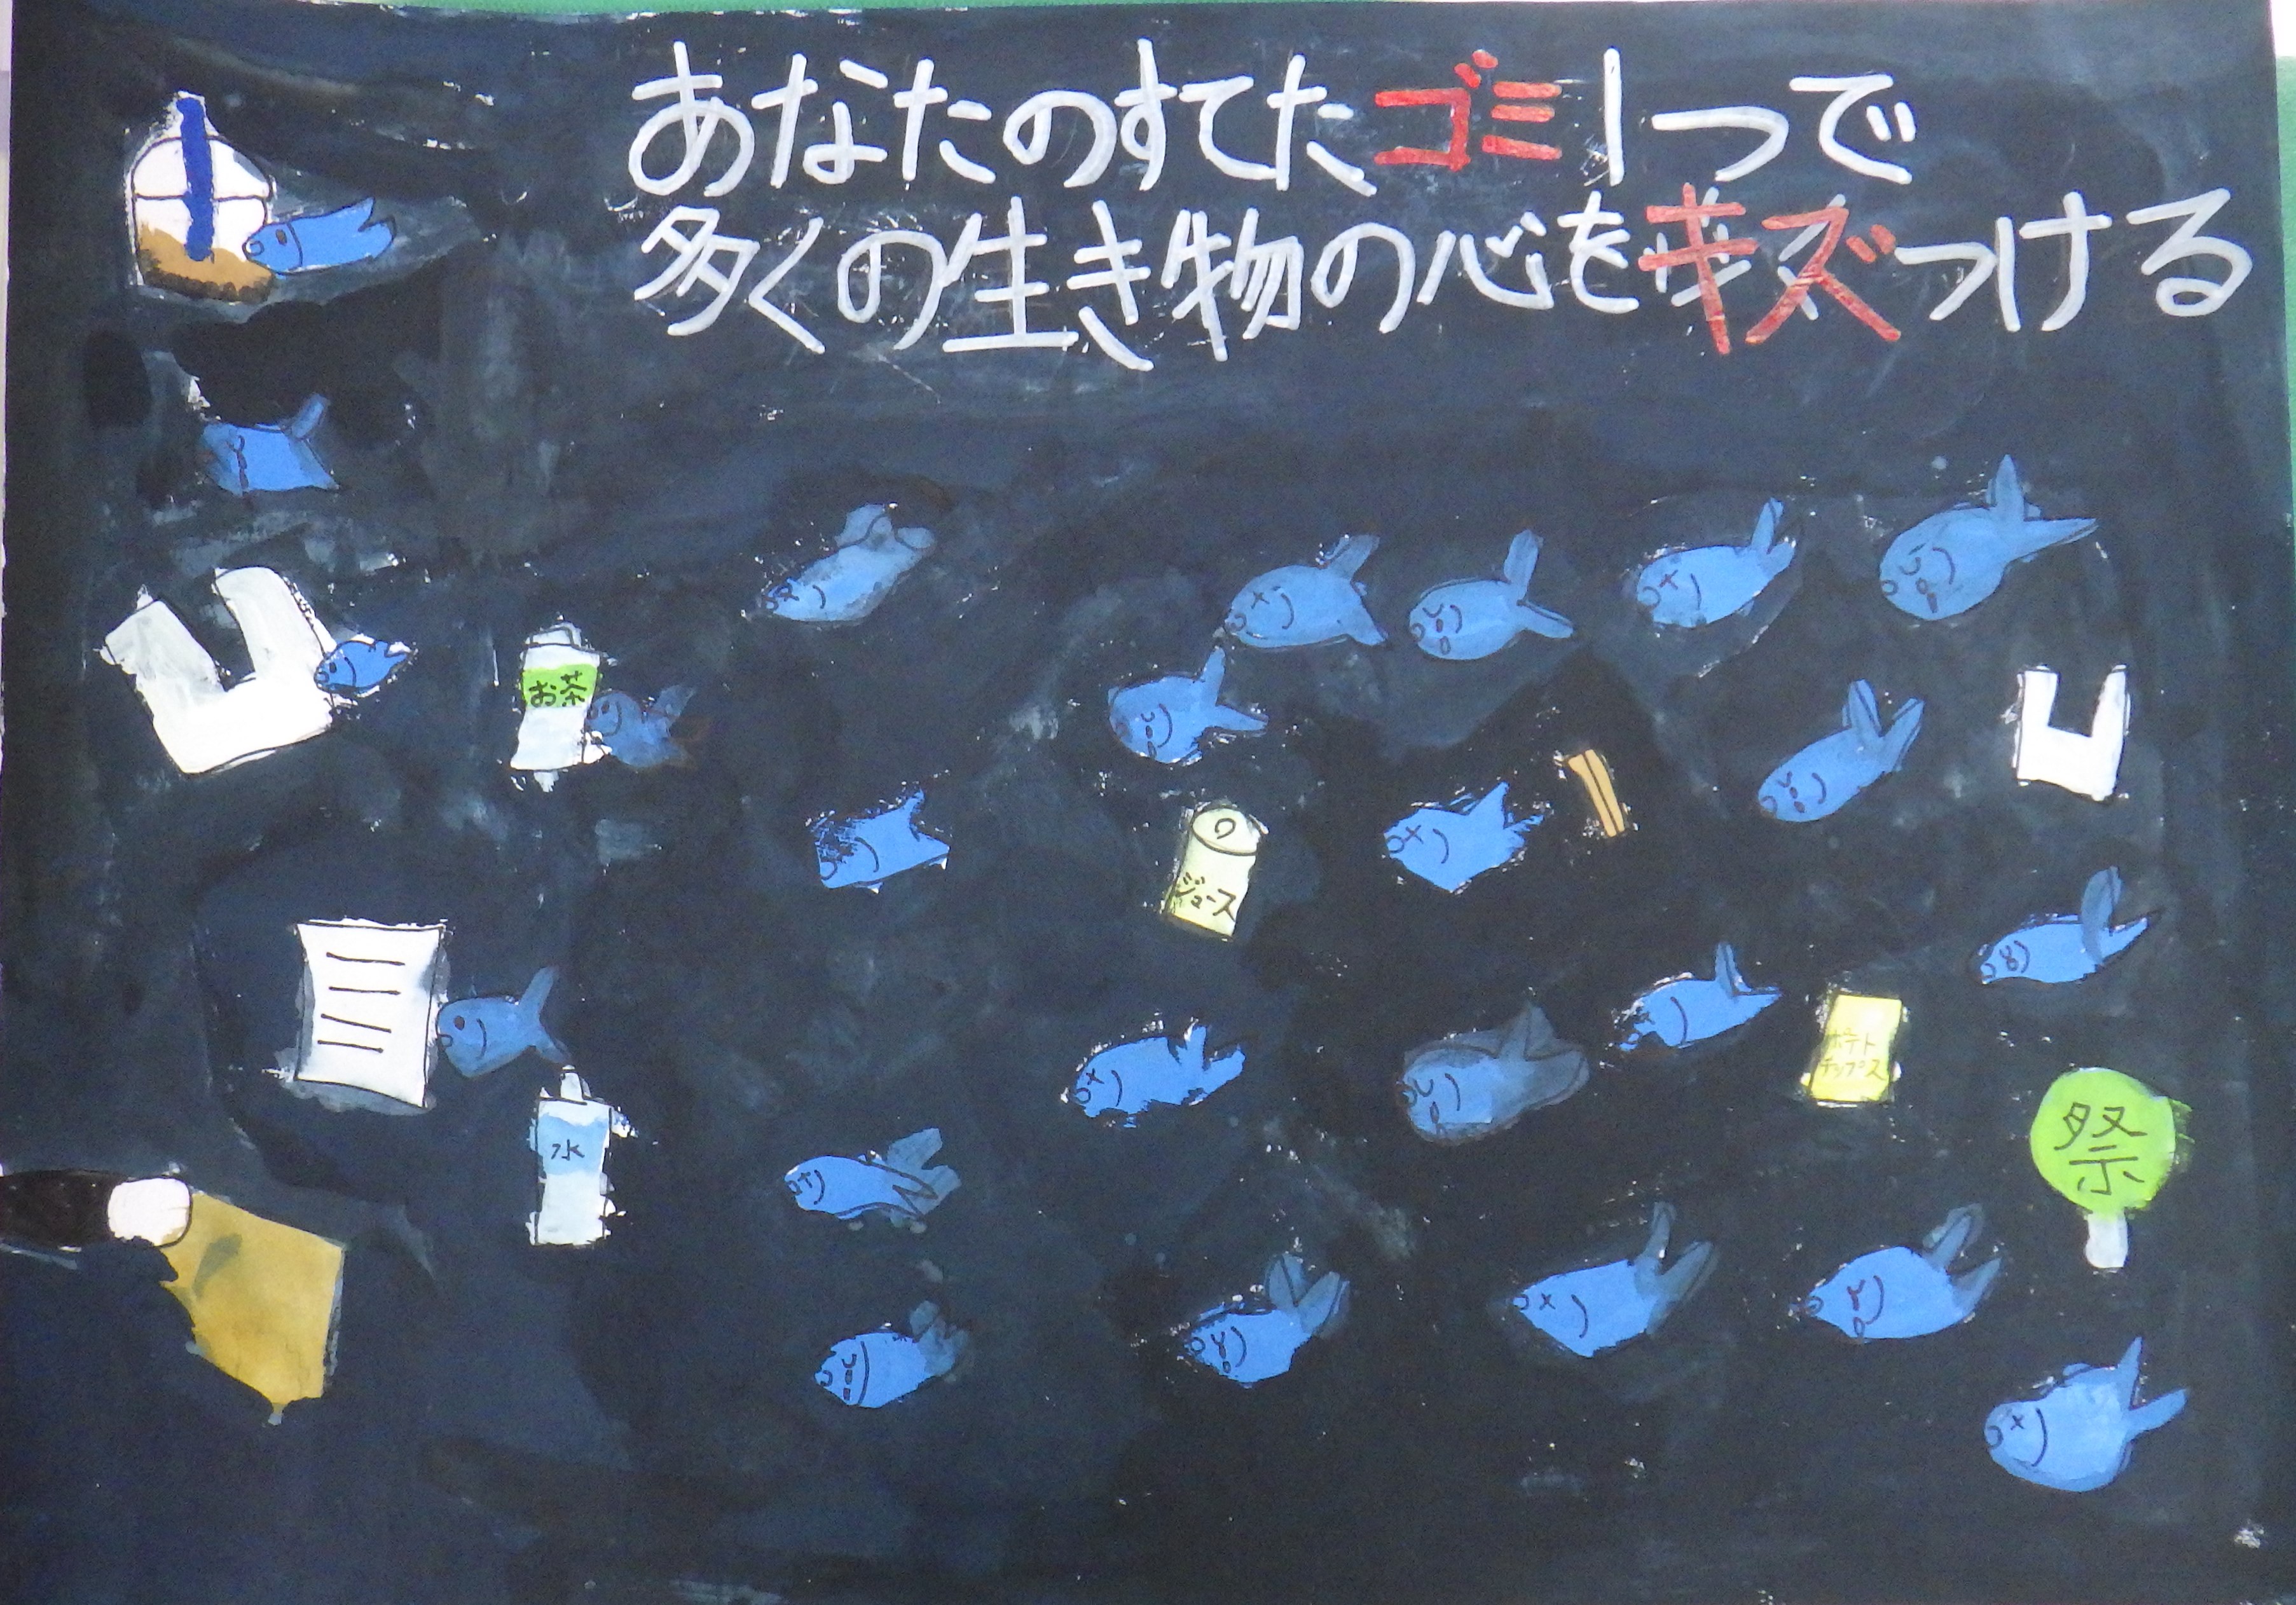 あなたのすてたゴミ1つで
多くの生き物の心をキズつける
お茶
ジュース
ポテト
チップス
水
祭